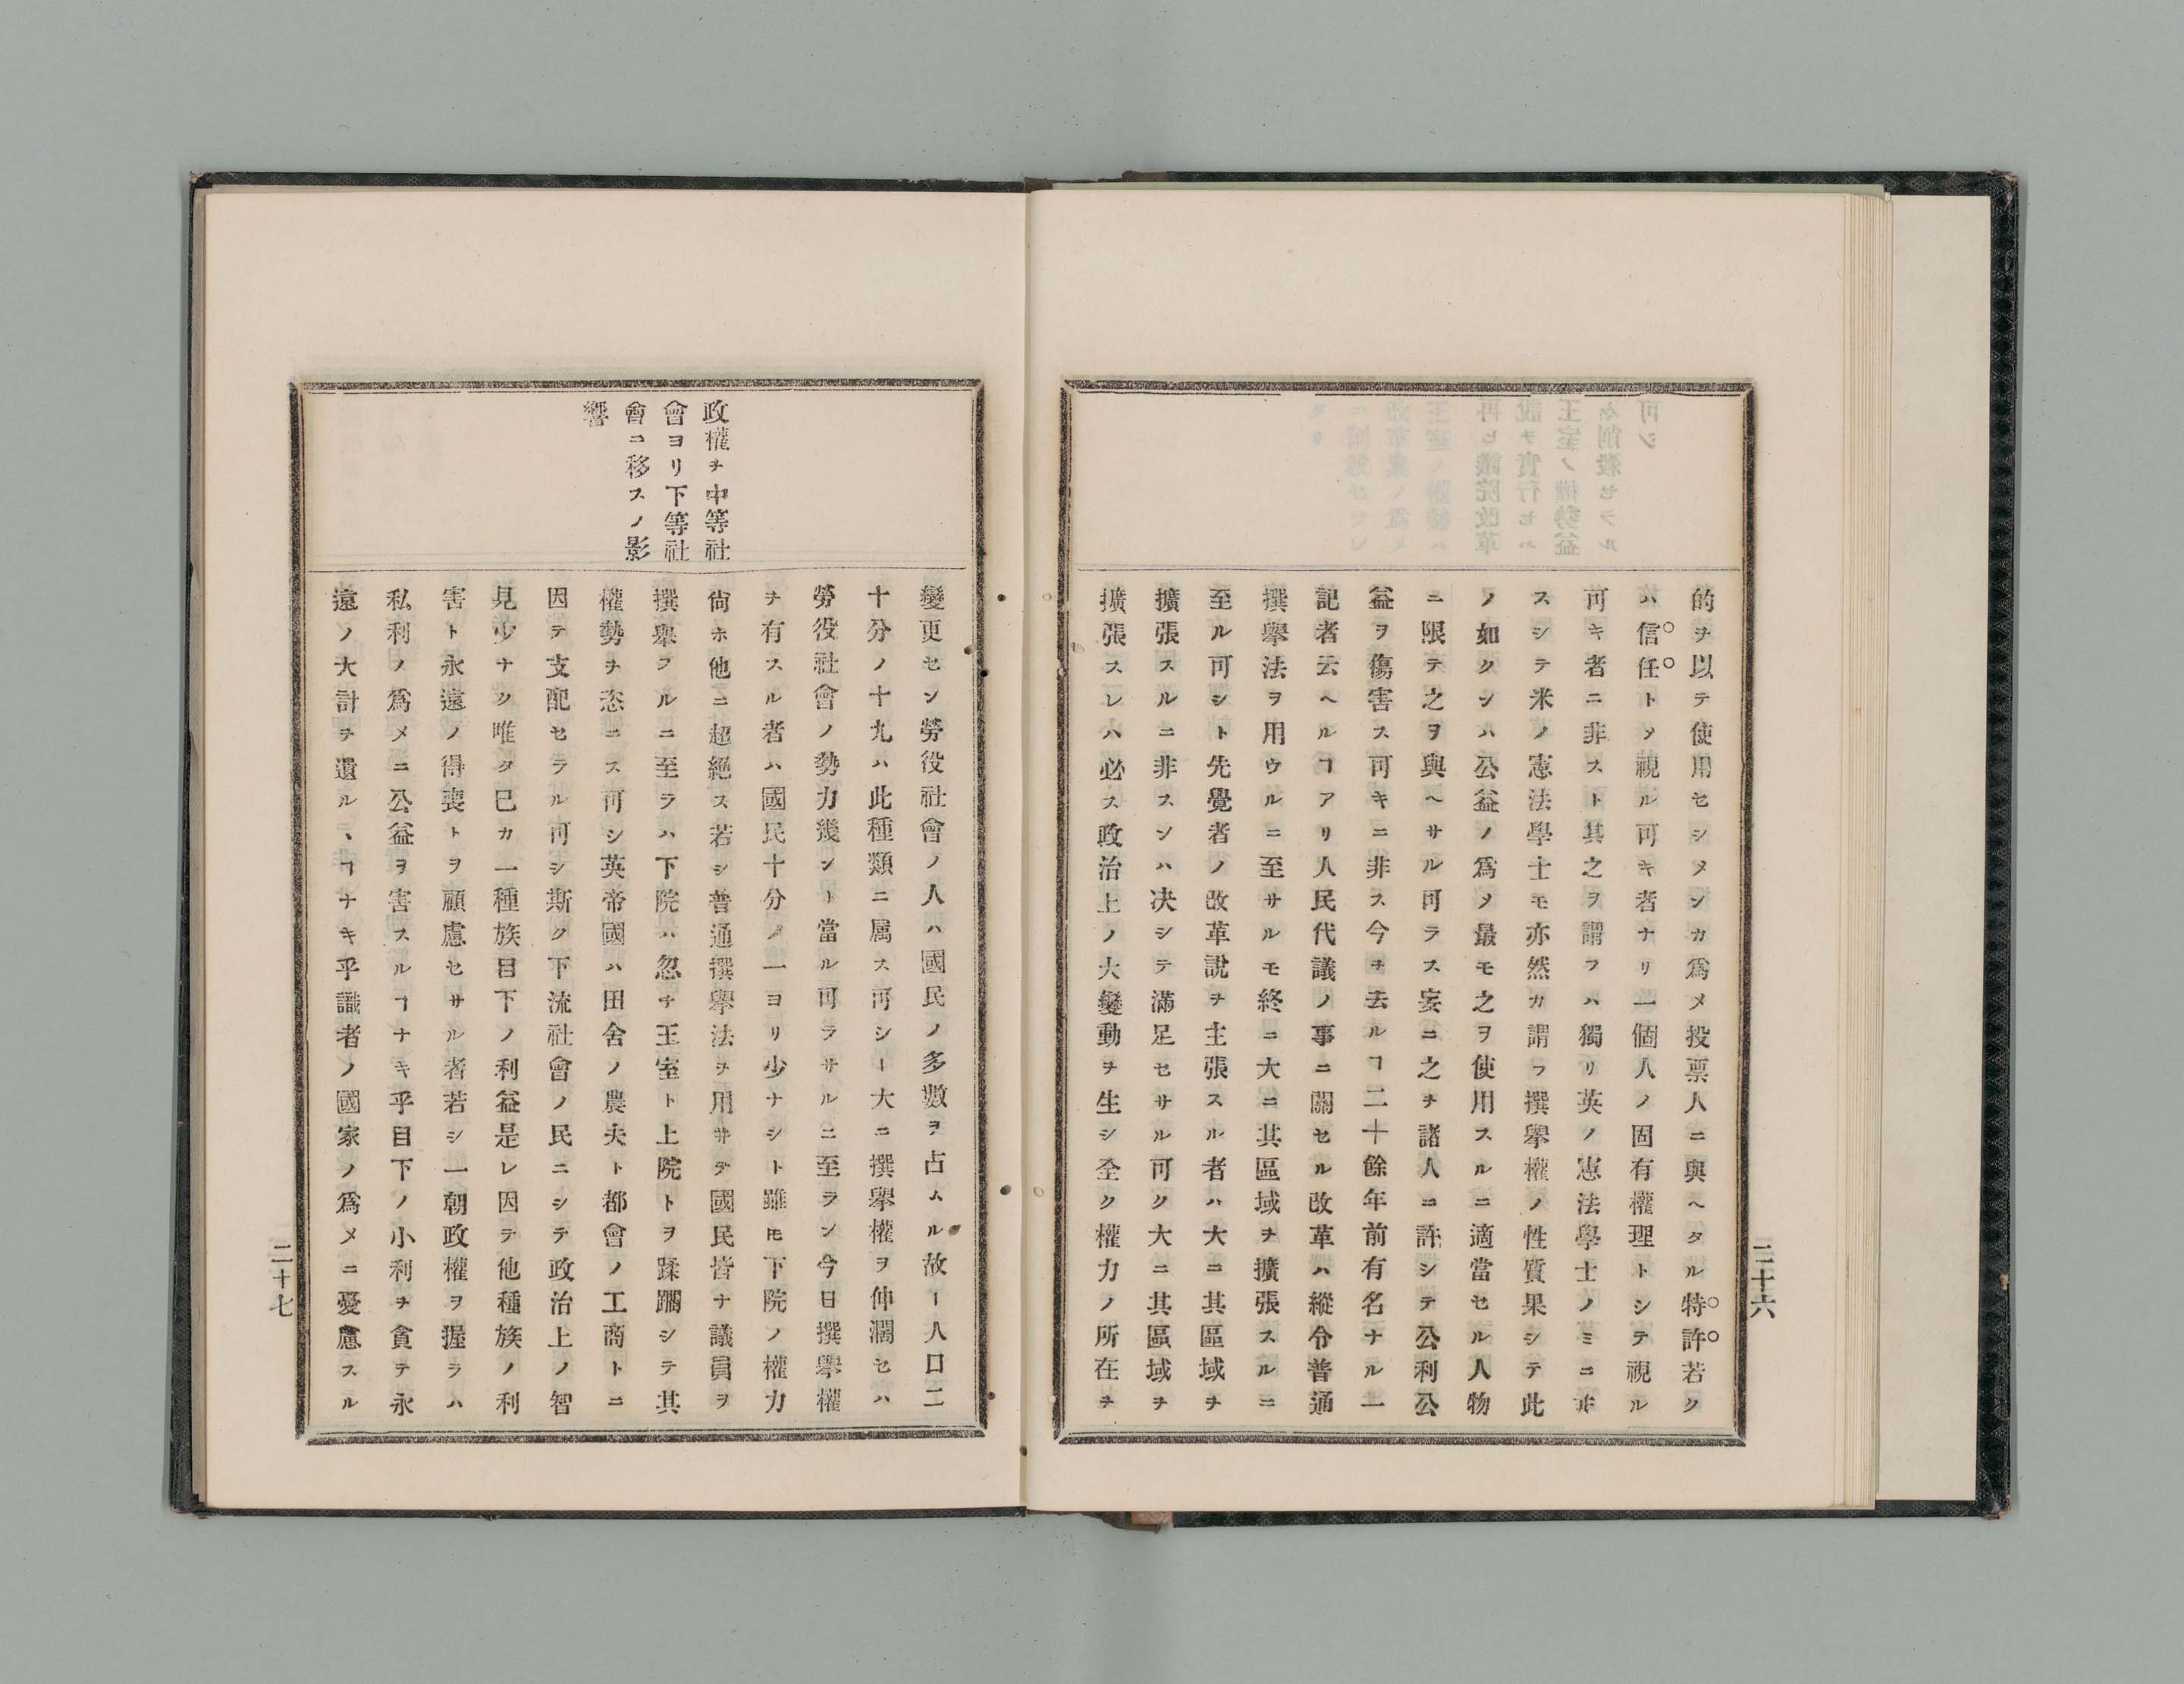 的ヲ以テ使用セシメンカ爲メ投票人ニ與ヘタル特許若ク
ハ信任トメ視ル可キ者ナリ一個人ノ固有權理トシテ視ル
可キ者ニ非スト其之ヲ謂フハ獨リ英ノ憲法學士ノミニ非
スシテ米ノ憲法學士モ亦然カ謂フ撰擧權ノ性質果シテ此
ノ如クシハ公益ノ爲メ最モ之ヲ使用スルニ適當セル人物
ニ限テ之ヲ與ヘサル可ラス妄ニ之ヲ諸人ニ許シテ公利公
益ヲ傷害ス可キニ非ス今ヲ去ルヿ二十餘年前有名ナル一
記者云ヘルヿアリ人民代議ノ事ニ關セル改革ハ縱令普通
撰擧法ヲ用ウルニ至サルモ終ニ大ニ其區域ヲ擴張スルニ
至ル可シト先覺者ノ改革說ヲ主張スル者ハ大ニ其區域ヲ
擴張スルニ非スンハ决シテ滿足セサル可ク大ニ其區域ヲ
擴張スレハ必ス政治上ノ大變動ヲ生シ全ク權力ノ所在ヲ
二十六
政權ヲ中等社
會ヨリ下等社
會ニ移スノ影
響
變更セン勞役社會ノ人ハ國民ノ多數ヲ占ムル故ー人口二
十分ノ十九ハ此種類ニ属ス可シー大ニ撰擧權ヲ伸濶セハ
勞役社會ノ勢力幾ント當ル可ラサルニ至ラン今日撰擧權
ヲ有スル者ハ國民十分ノ一ヨリ少ナシト雖モ下院ノ權力
尙ホ他ニ超絕ス若シ普通撰擧法ヲ用ヰテ國民皆ナ議員ヲ
撰擧フルニ至ラハ下院ハ忽チ王室ト上院トヲ蹂躙シテ其
權勢ヲ恣ニス可シ英帝國ハ田舍ノ農夫ト都會ノ工商トニ
因テ支配セラル可シ斯ク下流社會ノ民ニシテ政治上ノ智
見少ナク唯タ巳カ一種族目下ノ利益是レ因テ他種族ノ利
害ト永遠ノ得喪トヲ顧慮セサル者若シ一朝政權ヲ握ラハ
私利ノ爲メニ公益ヲ害スルヿナキ乎目下ノ小利ヲ貪テ永
遠ノ大計ヲ遺ルヽヿナキ乎識者ノ國家ノ爲メニ憂慮スル
二十七